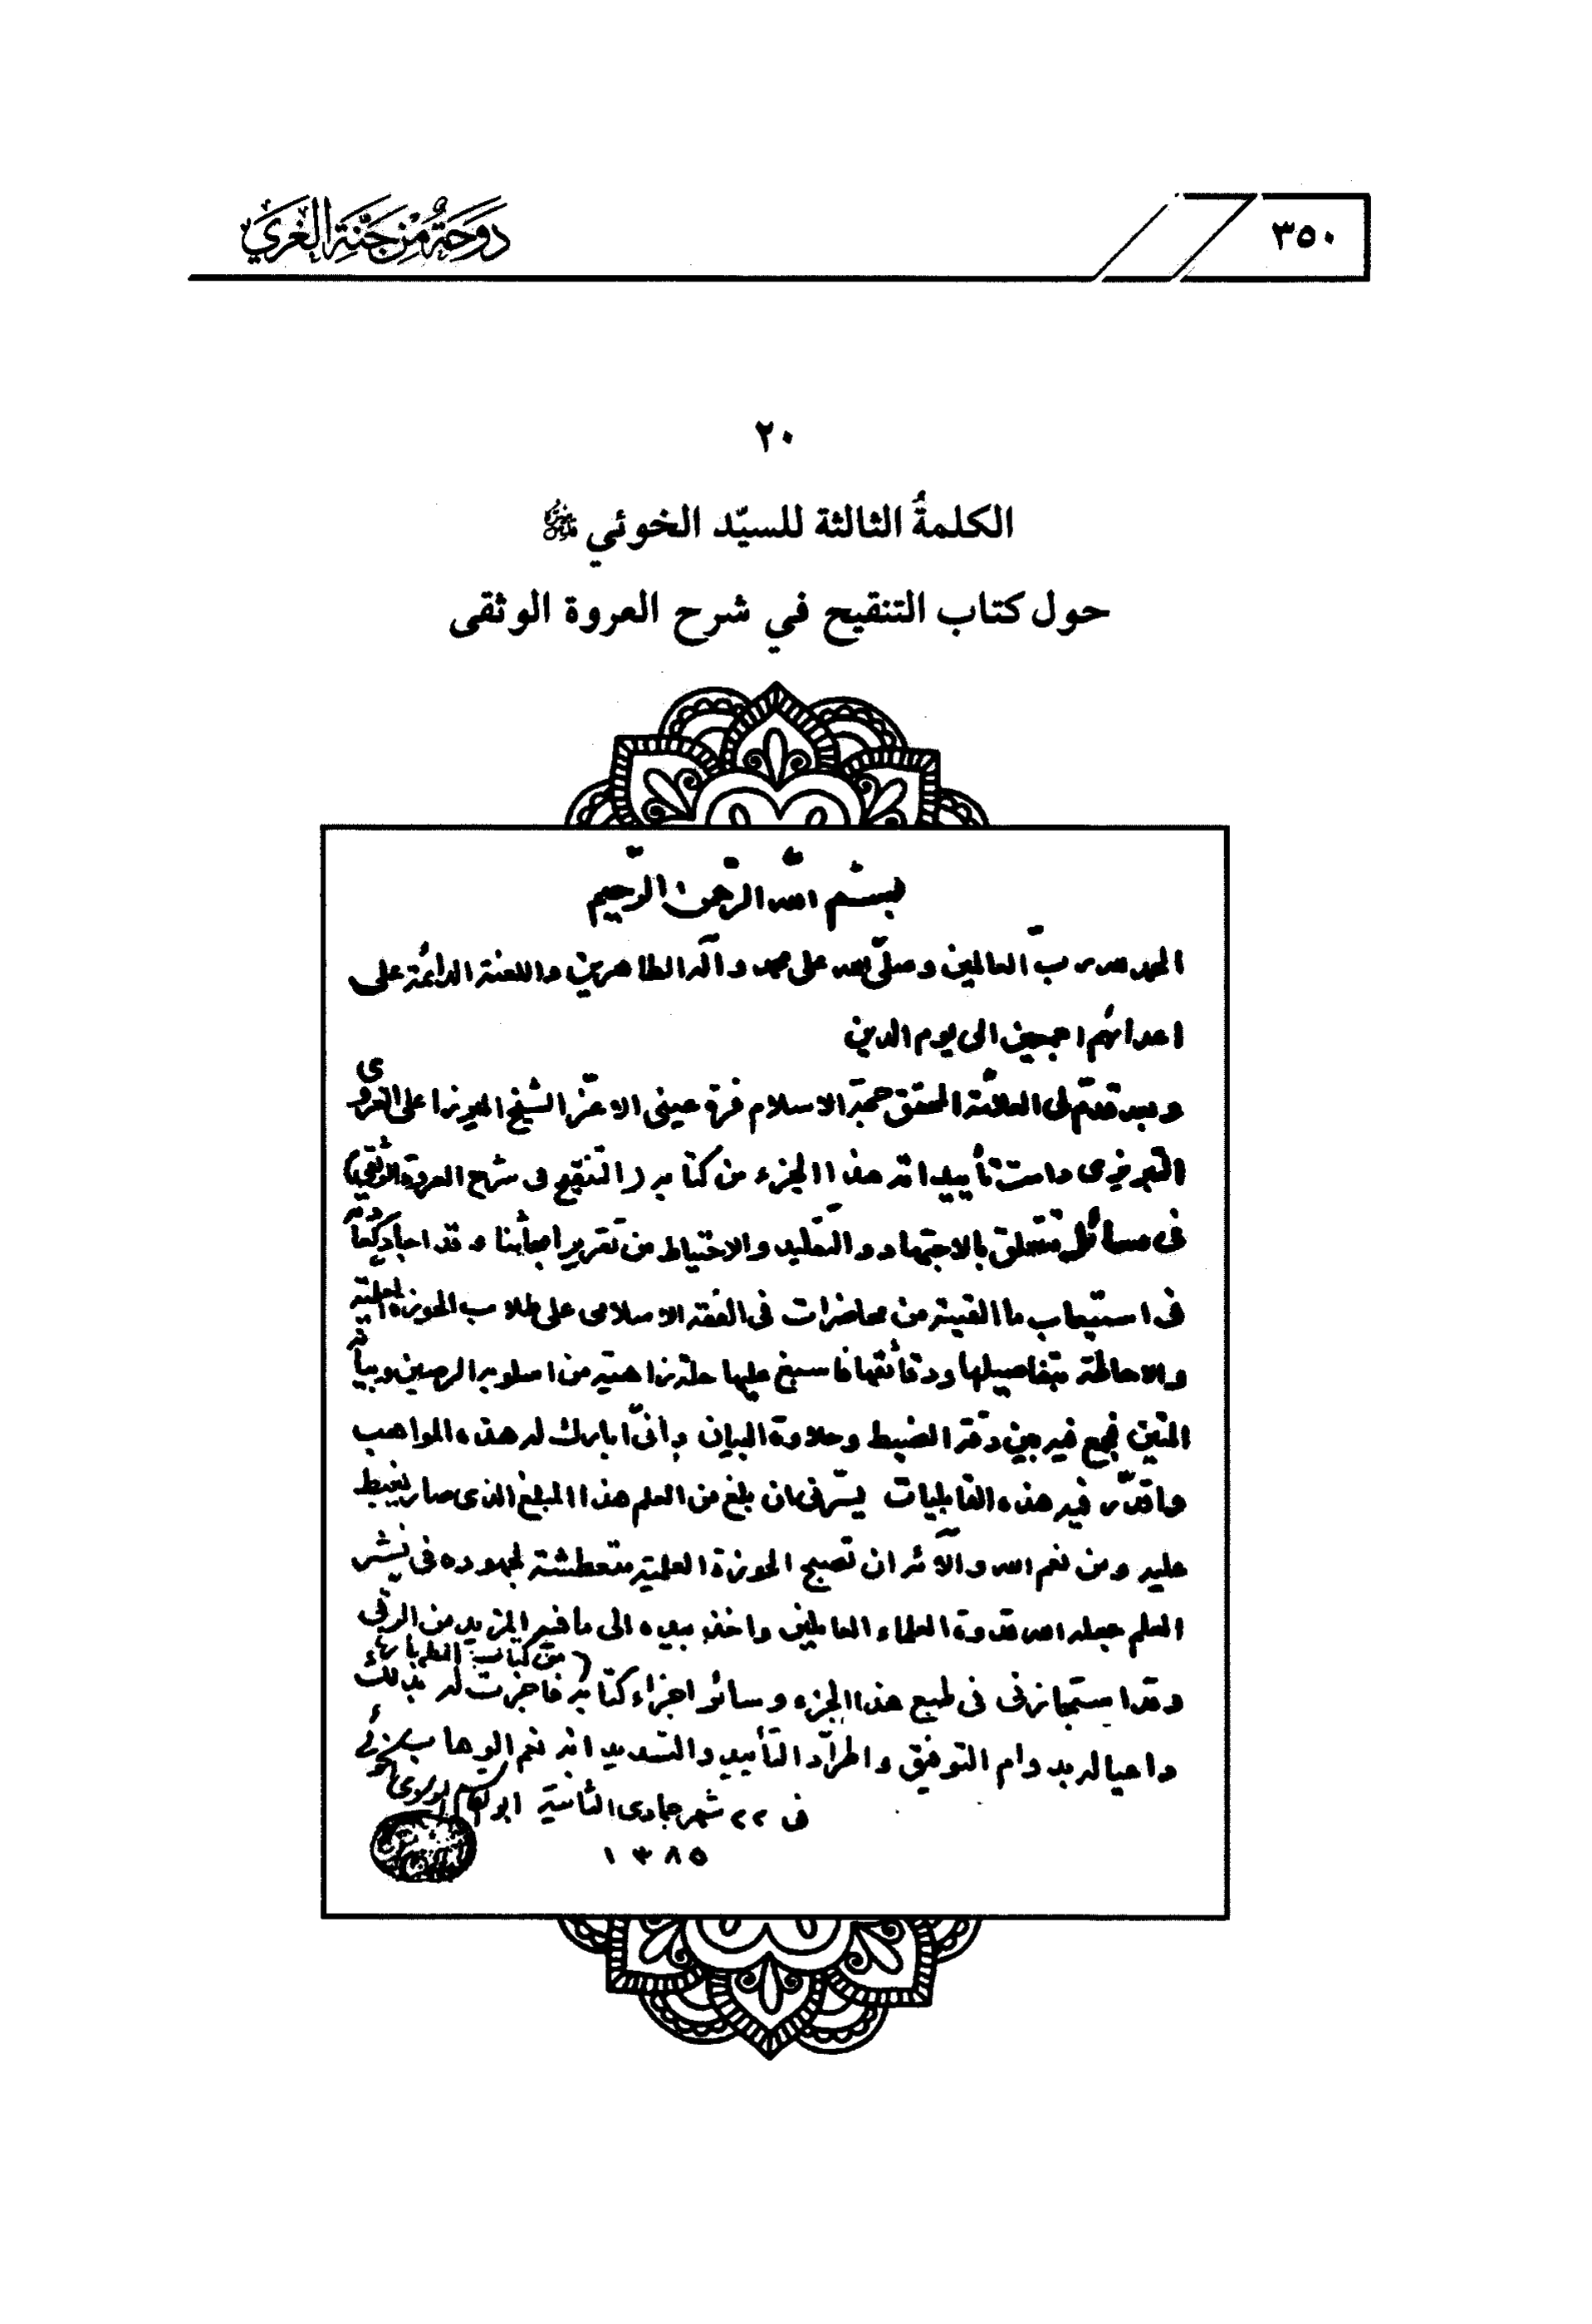 ٣٥٠
دوحة من جنة الغري
٢٠
الكلمةُ الثالثة للسيّد الخوئي
حول كتاب التنقيح في شرح العروة الوثقى
بسم الله الرّحمن الرّحيم
الحمد لله ربّ العالمين وصلّى الله على محمد وآله الطاهرين واللعنة الدائمة على
اعدائهم اجمعين الى يوم الدين
وبعد قدّم لى العلامّة المحقق حجة الاسلام قرة عينى الاعزّ الشيخ الميرزا على الغروى
التبريزى دامت تأييداته هذا الجزء من كتابه (التنقيح فى شرح العروة الوثقى)
فى مسائل تتعلق بالاجتهاد والتقليد والاحتياط من تقرير ابحاثنا وقد اجاد
فى استيعاب ما القيته من محاضرات فى الفقه الاسلامى على طلاب الحوزة العلمية
والاحاطة بتفاصيلها ودقائقها فاسبغ عليها حلة زاهية من اسلوبه الرصين وبيانه
المتين فجمع فيه بين دقة الضبط وحلاوة البيان وانّى ابارك له هذه المواهب
واقدّر فيه هذه القابليات يسرّنى ان بلغ من العلم هذا المبلغ الذى صار يغبط
عليه ومن نعم الله وآلائه ان تصبح الحوزة العلمية متعطشة لجهوده فى نشر
العلم جعله الله قدوة العلماء العاملين واخذ بيده الى ما فيه المزيد من الرقى
(من كتاب الطهارة)
وقد استجازنى فى طبع هذا الجزء وسائر اجزاء كتابه فاجزت له بذلك
داعيا له بدوام التوفيق واطّراد التأييد والتسديد انه نعم الوهاب
فى ٢٢ شهر جمادى الثانية ابو القاسم الموسوى الخوئى
١٣٨٥